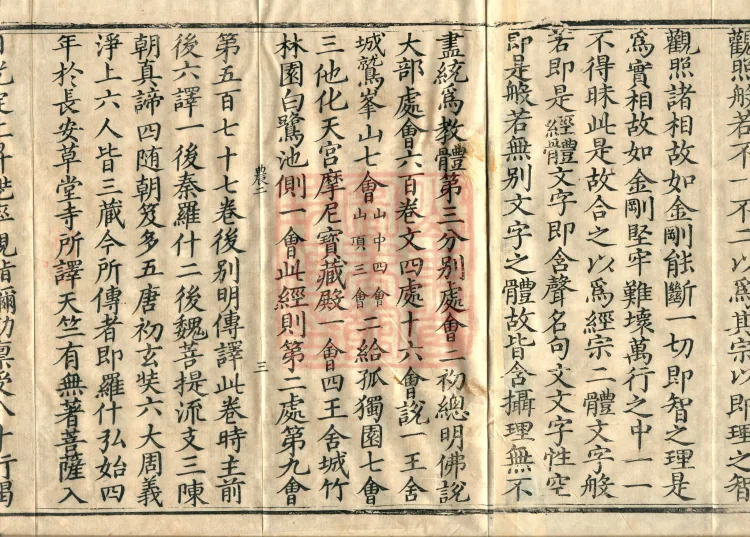 觀照般若不一不二以爲其宗以即理之智
觀照諸相故如金剛能斷一切即智之理是
爲實相故如金剛堅牢難壞萬行之中一一
不得昧此是故合之以爲經宗二體文字般
若即是經體文字即含聲名句文文字性空
即是般若無別文字之體故皆含攝理無不
盡統爲教體第三分別處會二初總明佛說
大部處會六百卷文四處十六會說一王舍
城鷲峯山七會山中四會山頂三會二給孤獨園七會
三他化天宮摩尼寶藏殿一會四王舍城竹
林園白鷺池側一會此經則第二處第九會
農二 三
第五百七十七卷後別明傳譯此卷時主前
後六譯一後秦羅什二後魏菩提流支三陳
朝真諦四随朝笈多五唐初玄奘六大周義
淨上六人皆三藏今所傳者即羅什弘始四
年於長安草堂寺所譯天竺有無著菩薩入